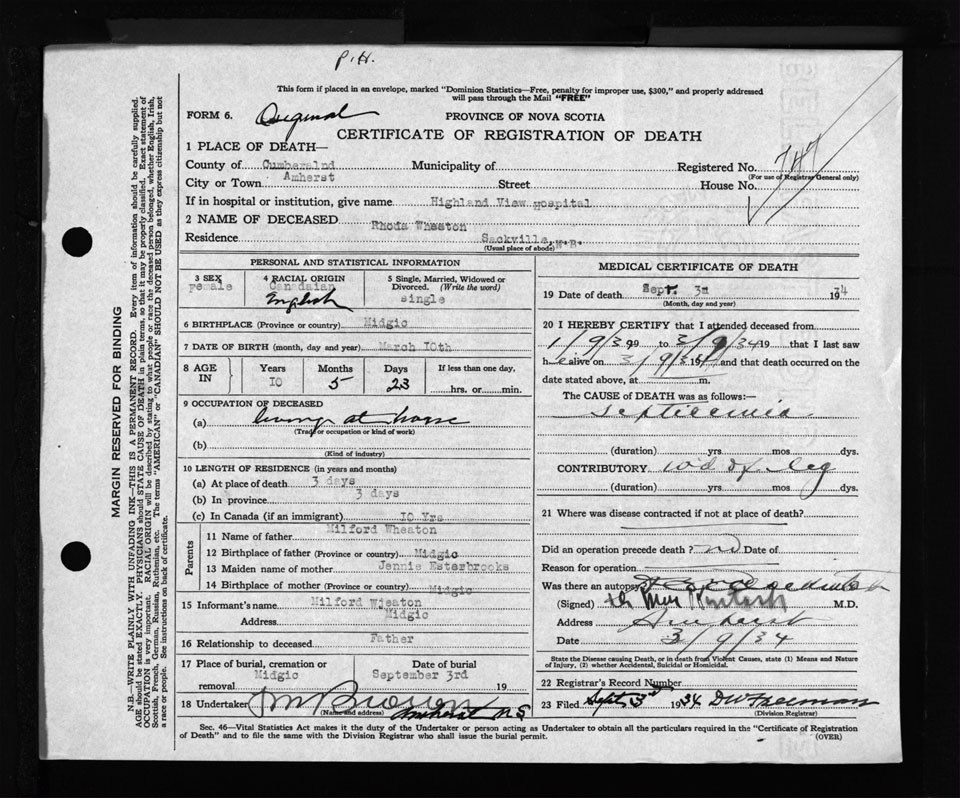 P.H.
This form if placed in an envelope, marked "Dominion Statistics—Free, penalty for improper use, $300," and properly addressed
will pass through the Mail "FREE"
FORM 6. Original PROVINCE OF NOVA SCOTIA
CERTIFICATE OF REGISTRATION OF DEATH
1 PLACE OF DEATH—
County of Cumberalnd Municipality of Registered No. 747
(For use of Registrar General only)
City or Town Amherst Street House No.
If in hospital or institution, give name Highland View hospital
2 NAME OF DECEASED Rhoda Wheaton
Residence Sackville, N.B.
(Usual place of abode)
PERSONAL AND STATISTICAL INFORMATION
3 SEX female
4 RACIAL ORIGIN Canadaian English
5 Single, Married, Widowed or Divorced. (Write the word) single
6 BIRTHPLACE (Province or country) Midgic
7 DATE OF BIRTH (month, day and year) March 10th
8 AGE IN Years 10 Months 5 Days 23 If less than one day, hrs. or min.
9 OCCUPATION OF DECEASED
(a) living at home
(Trade or occupation or kind of work)
(b)
(Kind of industry)
10 LENGTH OF RESIDENCE (in years and months)
(a) At place of death 3 days
(b) In province 3 days
(c) In Canada (if an immigrant) 10 Yrs
Parents
11 Name of father Milford Wheaton
12 Birthplace of father (Province or country) Midgic
13 Maiden name of mother Jennie Esterbrooks
14 Birthplace of mother (Province or country) Midgic
15 Informant's name Milford Wjeaton
Address Midgic
16 Relationship to deceased Father
17 Place of burial, cremation or removal Midgic
Date of burial September 3rd 19
18 Undertaker J M Brown
(Name and address) Amherst N S
MEDICAL CERTIFICATE OF DEATH
19 Date of death Sept. 3 1934
(Month, day and year)
20 I HEREBY CERTIFY that I attended deceased from
1/9/34 19 to 3/9/34 19 that I last saw
h e alive on 3/9/34 19 and that death occurred on the
date stated above, at m.
The CAUSE of DEATH was as follows:—
Septicemia
(duration) yrs. mos. dys.
CONTRIBUTORY w'd of leg
(duration) yrs. mos. dys.
21 Where was disease contracted if not at place of death?
Did an operation precede death? no Date of
Reason for operation
Was there an autopsy
(Signed) M.D.
Address Amherst
Date 3/9/34
State the Disease causing Death, or in death from Violent Causes, state (1) Means and Nature
of Injury, (2) whether Accidental, Suicidal or Homicidal.
22 Registrar's Record Number
23 Filed Sept 3rd 1934 D W Freeman
(Division Registrar)
Sec. 46—Vital Statistics Act makes it the duty of the Undertaker or person acting as Undertaker to obtain all the particulars required in the "Certificate of Registration
of Death" and to file the same with the Division Registrar who shall issue the burial permit. (OVER)
MARGIN RESERVED FOR BINDING
N.B.—WRITE PLAINLY WITH UNFADING INK—THIS IS A PERMANENT RECORD. Every item of information should be carefully supplied.
AGE should be stated EXACTLY. PHYSICIANS should STATE CAUSE OF DEATH in plain terms, so that it may be properly classified. Exact statement of
OCCUPATION is very important. RACIAL ORIGIN will be described by stating to what people or race the deceased person belonged, whether English, Irish,
Scottish, French, German, Russian, Ruthenian, etc. The terms "AMERICAN" or "CANADIAN" SHOULD NOT BE USED as they express citizenship but not
a race or people. See instructions on back of certificate.